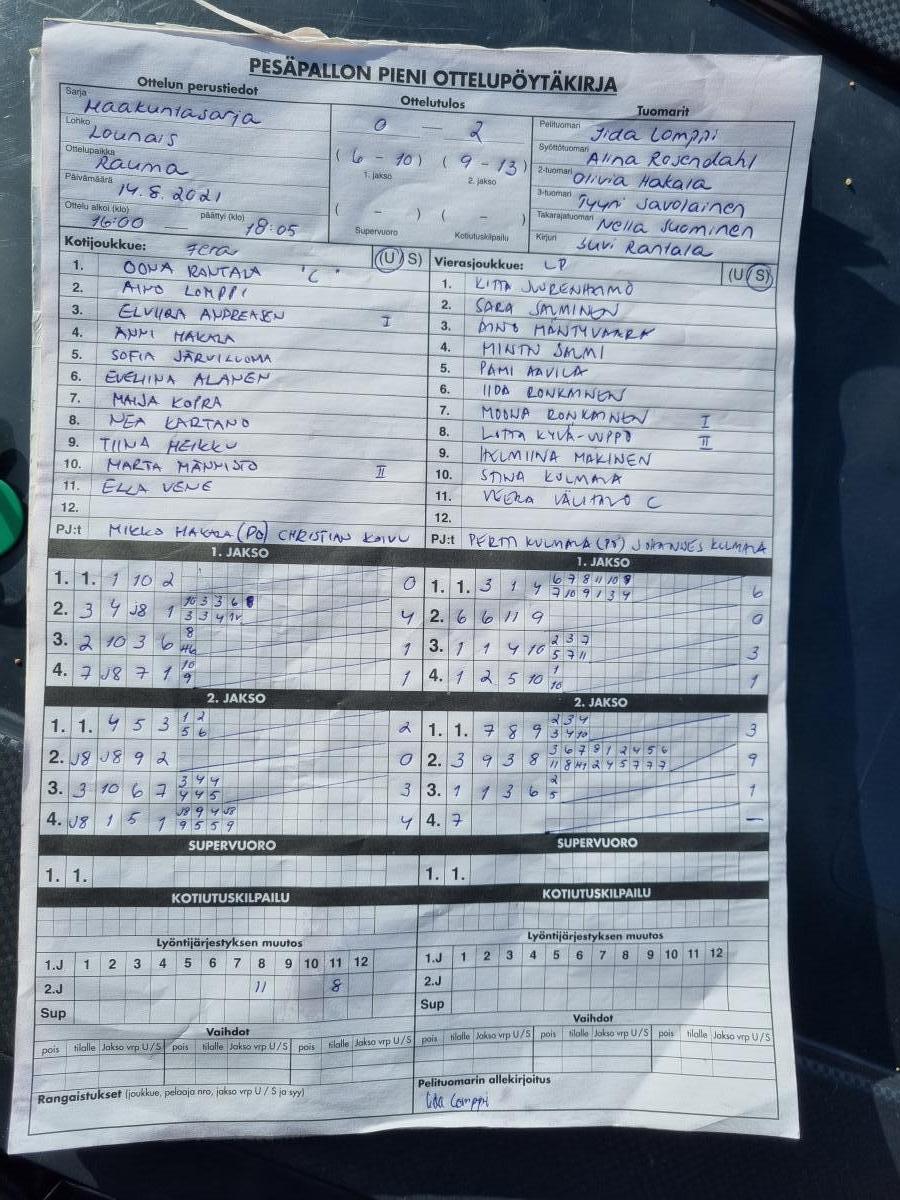 PESÄPALLON PIENI OTTELUPÖYTÄKIRJA
Ottelun perustiedot
Ottelutulos
Tuomarit
Sarja Maakuntasarja
Lohko Lounais
Ottelupaikka Rauma
Päivämäärä 14.8.2021
Ottelu alkoi (klo) 16:00 — päättyi (klo) 18:05
0 — 2
(6 - 10) (9 - 13)
1. jakso 2. jakso
( - ) ( - )
Supervuoro Kotiutuskilpailu
Pelituomari Iida Lomppi
Syöttötuomari Alina Rosendahl
2-tuomari Olivia Hakala
3-tuomari Tyyni Savolainen
Takarajatuomari Nella Suominen
Kirjuri Suvi Rantala
Kotijoukkue: Fera (U S)
1. OONA RANTALA "C"
2. AINO LOMPPI
3. ELVIIRA ANDREASEN I
4. ANNI HAKALA
5. SOFIA JÄRVILUOMA
6. EVELIINA ALANEN
7. MAIJA KOPRA
8. NEA KARTANO
9. TIINA HEIKKU
10. MARTA MÄNNISTÖ II
11. ELLA VENE
12.
PJ:t MIKKO HAKALA (PÖ) CHRISTIAN KOIVU
Vierasjoukkue: LP (U S)
1.
2. SARA SALMINEN
3. AINO MÄNTYVAARA
4. MINTN SALMI
5. PAMI AAVILA
6. IIDA RONKAINEN
7. MOONA RONKAINEN I
8. LOTTA II
9. MAKINEN
10. STINA KULMALA
11. VEERA C
12.
PJ:t PERTTI KULMALA (PÖ) JOHANNES KULMALA
1. JAKSO
1. 1. 1 10 2 0
2. 3 4 J8 1 4
3. 2 10 3 6 8 1
4. 7 J8 7 1 10 9 1
1. JAKSO
1. 1. 3 1 4 6 7 8 11 10 8 6
7 10 9 1 3 4
2. 6 6 11 9 0
3. 1 1 4 10 2 3 7 3
5 7 11
4. 1 2 5 10 1 1
10
2. JAKSO
1. 1. 4 5 3 1 2 2
5 6
2. J8 J8 9 2 0
3. 3 10 6 7 3 4 4 3
4 4 5
4. J8 1 5 1 J8 9 4 J8 4
9 5 5 9
2. JAKSO
1. 1. 7 8 9 2 3 4 3
3 4 10
2. 3 9 3 8 3 6 7 8 1 2 4 5 6 9
11 8 2 4 5 7 7 7
3. 1 1 3 6 2 1
5
4. 7 —
SUPERVUORO
1. 1.
SUPERVUORO
1. 1.
KOTIUTUSKILPAILU
KOTIUTUSKILPAILU
Lyöntijärjestyksen muutos
1.J 1 2 3 4 5 6 7 8 9 10 11 12
2.J 11 8
Sup
Lyöntijärjestyksen muutos
1.J 1 2 3 4 5 6 7 8 9 10 11 12
2.J
Sup
Vaihdot
pois tilalle Jakso vrp U/S pois tilalle Jakso vrp U/S pois tilalle Jakso vrp U/S
Vaihdot
pois tilalle Jakso vrp U/S pois tilalle Jakso vrp U/S pois tilalle Jakso vrp U/S
Rangaistukset (joukkue, pelaaja nro, jakso vrp U / S ja syy)
Pelituomarin allekirjoitus
Iida Lomppi